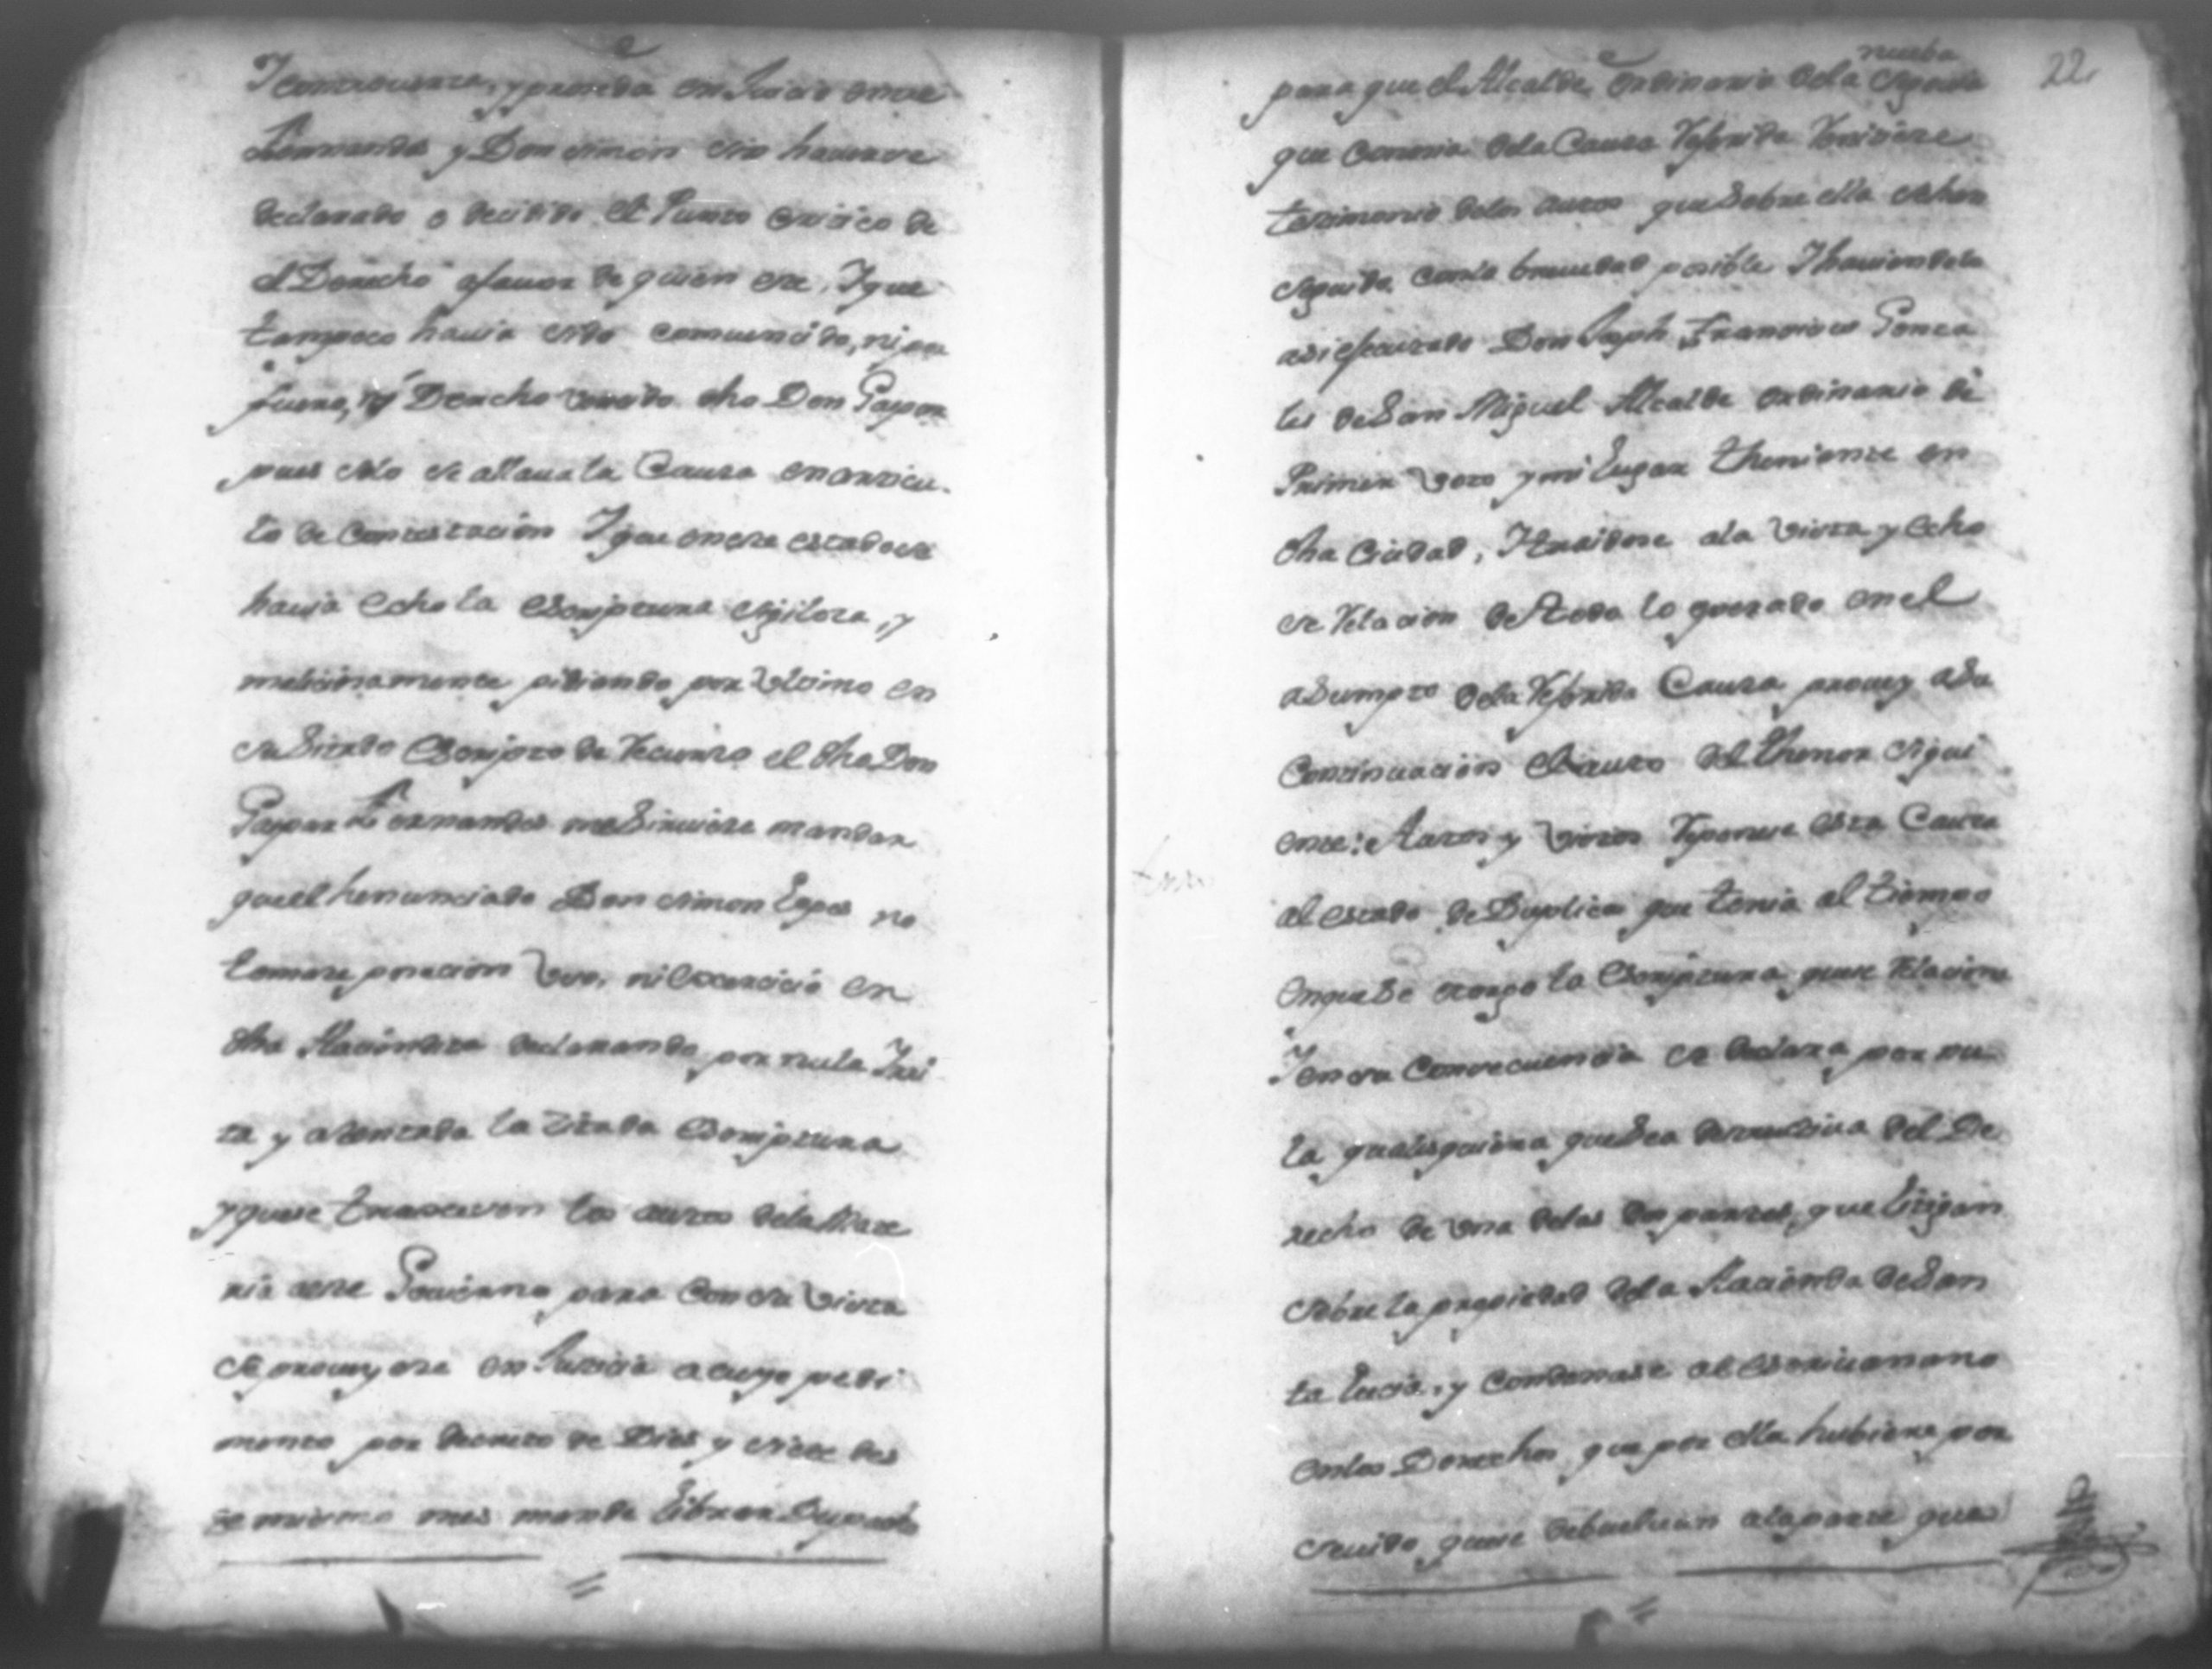 Y controversia, y puesta en Juicio entre
Fernandes y Don Simon sin haverse
declarado o decidido el Punto critico de
el Derecho afavor de quien era, Y que
tampoco havia sido comvencido, ni por
fuero, ni Derecho vencido dho Don Gaspar
pues solo se allava la Causa en articu-
lo de Contestacion Y que en ese estado se
havia echo la Escriptura sigilosa, y
maliciosamente pidiendo por Vltimo en
su Sitado Escripto de Recurso el dho Don
Gaspar Fernandes me Sirviese mandar
que el henunciado Don Simon Lopes no
tomase posecion Vso, ni Excercicio en
dha Hacienda declarando por nula Yrri
ta y atentada la Zitada Escriptura
y que se trajecen los autos de la Mate
ria a este Govierno para Con su Vista
se proveyese en Justicia a cuyo pedi
mento por decreto de Dies y siete de
ese mismo mes mande Librar Despacho
22
nueba
para que el Alcalde ordinario de la Segovia
que Conocia de la Causa Referida Remitiese
testimonio de los autos que Sobre ella se han
seguido con la brevedad posible Y haviendola
asi efectuado Don Joseph Francisco Gonza
les de San Miguel Alcalde ordinario de
Primer Voto y mi Lugar theniente en
dha Ciudad, Y traidose a la Vista y echo
se Relacion de Ttodo lo operado en el
aSumpto de la Referida Causa provey a Su
Continuacion El auto del thenor Sigui
ente: Autos y Vistos Reponese esta Causa
al estado de Duplica que tenia al tiempo
en que Se otorgo la Escriptura que se Relaciona
Y en su Consecuencia se declara por nu-
la qualesquiera que Sea destructiva del De
recho de Vna de las dos partes, que Litigan
sobre la propiedad de la Hacienda de San
ta Lucia, y Condenase al Escrivano
en los Derechos que por ella hubiere per
sevido que se debuelvan a la parte que